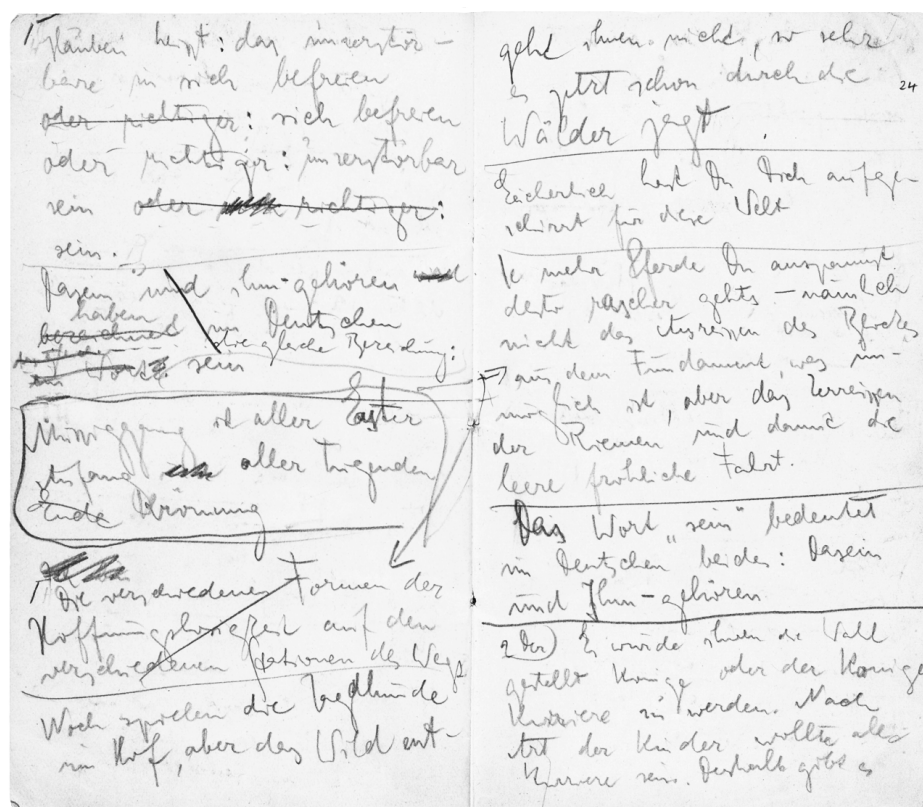 Glauben heißt: das unzerstör-
bare in sich befreien
oder richtiger: sich befreien
oder richtiger: unzerstörbar
sein oder richtiger:
sein.
Dasein und ihm-gehören
haben
bezeichnet im Deutschen
die gleiche Bezeichung:
ein Wort: sein
Müssiggang ist aller Laster
Anfang aller Tugenden
Ende Krönung
Die verschiedenen Formen der
Hoffnungslosigkeit auf den
verschiedenen Stationen des Wegs
Noch spielen die Jagdhunde
im Hof, aber das Wild ent-
geht ihnen nicht, so sehr
es jetzt schon durch die
24
Wälder jagt
Lächerlich hast Du Dich aufge-
schirrt für diese Welt
Je mehr Pferde Du anspannst
desto rascher gehts – nämlich
nicht das Ausreissen des Blockes
aus dem Fundament, was un-
möglich ist, aber das Zerreissen
der Riemen und damit die
leere fröhliche Fahrt.
Das Wort „sein" bedeutet
im Deutschen beides: Dasein
und Ihm-gehören
Es wurde ihnen die Wahl
gestellt Könige oder der Könige
Kuriere zu werden. Nach
Art der Kinder wollten alle
Kuriere sein. Deshalb gibt es